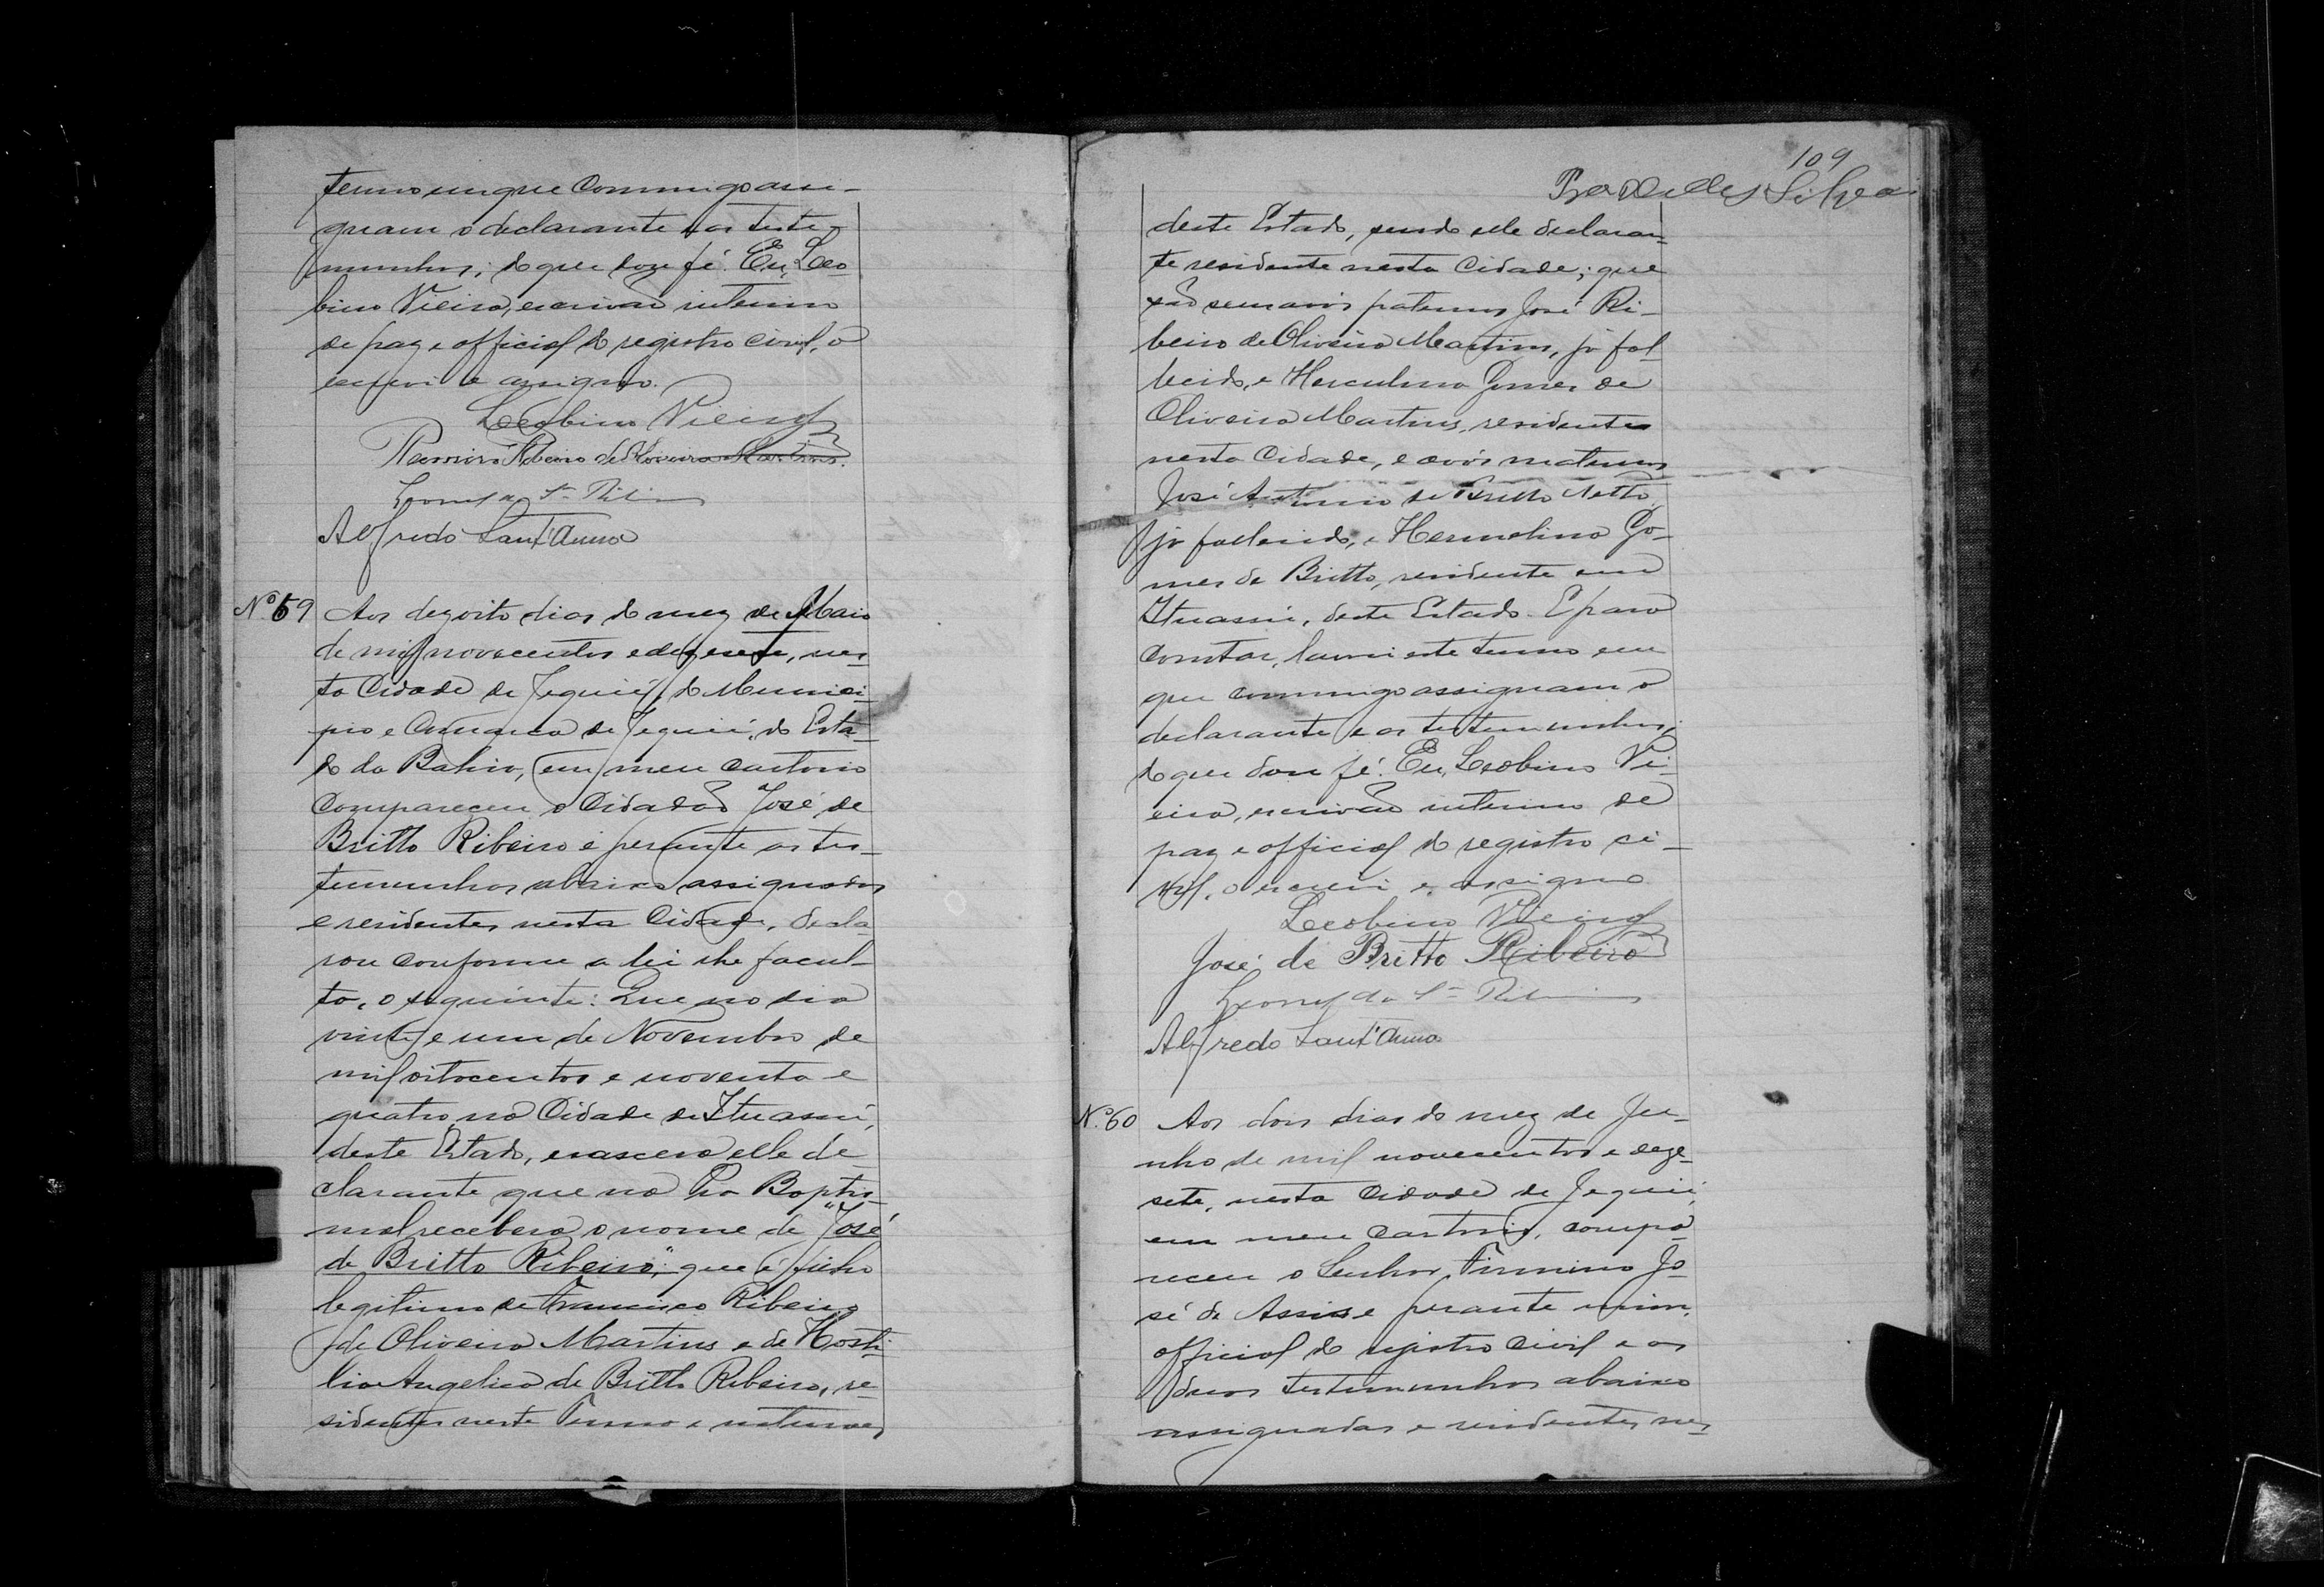 termo em que commigo assi-
gnam o declarante e as teste-
munhas; do que dou fé. Eu, Leo-
bino Vieira, escrivão interino
de paz e official do registro civil, o
escrevi e assigno.
Leobino Vieira
Ramiro Ribeiro de Oliveira Martins.
Alfredo Sant'Anna
Nº 59 Aos dezoito dias do mez de Maio
de mil novecentos e dezesete, nes-
ta Cidade de Jequié, do Munici-
pio e Comarca de Jequié, do Esta-
do da Bahia, em meu cartorio
compareceu o Cidadão José de
Britto Ribeiro e perante as tes-
temunhas abaixo assignadas
e residentes nesta Cidade, decla-
rou conforme a lei lhe facul-
ta, o seguinte: Que no dia
vinte e um de Novembro de
mil oitocentos e noventa e
quatro, na Cidade de Ituassú,
deste Estado, nascera elle de-
clarante que na Pia Baptis-
mal recebera o nome de "José
de Britto Ribeiro"; que é filho
legitimo de Francisco Ribeiro
de Oliveira Martins e de Hosti-
lia Angelica de Britto Ribeiro, re-
sidentes neste Termo e naturaes
109
deste Estado, sendo elle declaran-
te residente nesta Cidade; que
são seus avós paternos José Ri-
beiro de Oliveira Martins, já fal-
lecido, e Herculana Gomes de
Oliveira Martins, residente
nesta Cidade, e avós maternos
José Antonio de Britto Netto,
já fallecido, e Hermelina Go-
mes de Britto, residente em
Ituassú, deste Estado. E para
constar, lavrei este termo em
que commigo assignam o
declarante e as testemunhas;
do que dou fé. Eu, Leobino Vi-
eira, escrivão interino de
paz e official do registro ci-
vil, o escrevi e assigno
Leobino Vieira
José de Britto Ribeiro
Alfredo Sant'Anna
Nº 60 Aos dois dias do mez de Ju-
nho de mil novecentos e deze-
sete, nesta Cidade de Jequié,
em meu cartorio, compa-
receu o Senhor Firmino Jo-
sé de Assis e perante mim,
official do registro civil e as
duas testemunhas abaixo
assignadas e residentes nes-